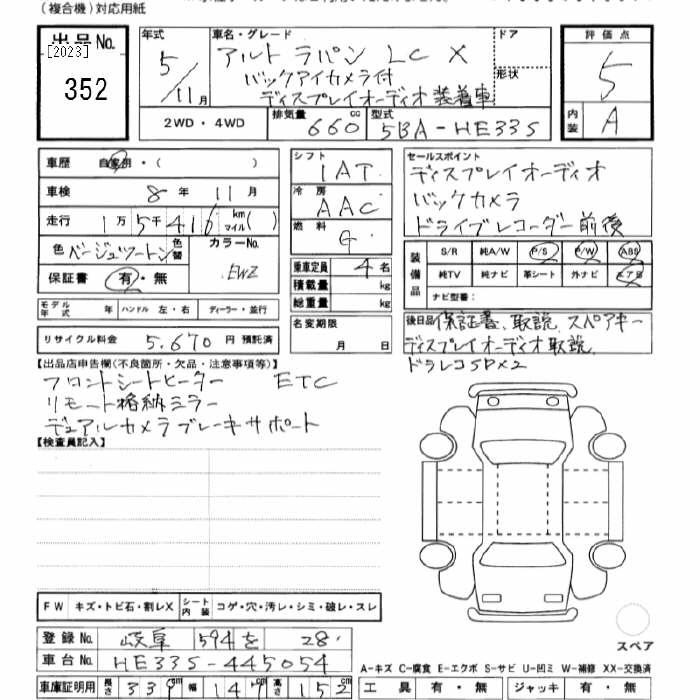 (複合機)対応用紙
出品No.
[2023]
352
年式
5/11月
車名・グレード
アルト ラパン LC X
バックアイカメラ付
ディスプレイオーディオ装着車
ドア
形状
評価点
5
内装
A
2WD・4WD
排気量
660 cc
型式
5BA-HE33S
車歴
自家用・( )
車検
8年 11月
走行
1万5千416 km マイル( )
色
ベージュツートン
色替
カラーNo.
EWZ
保証書
有・無
シフト
IAT
冷房
AAC
燃料
G
乗車定員
4名
積載量
kg
総重量
kg
セールスポイント
ディスプレイオーディオ
バックカメラ
ドライブレコーダー前後
装備品
S/R 純A/W P/S P/W ABS
純TV 純ナビ 革シート 外ナビ エアB
ナビ型番:
モデル年式
年 ハンドル 左・右 ディーラー・並行
リサイクル料金
5.670円 預託済
名変期限
月 日
後日品
保証書、取説、スペアキー
ディスプレイオーディオ取説、
ドラレコSDX2
【出品店申告欄(不良箇所・欠品・注意事項等)】
フロントシートヒーター ETC
リモート格納ミラー
デュアルカメラブレーキサポート
【検査員記入】
FW キズ・トビ石・割レX
シート内装 コゲ・穴・汚レ・シミ・破レ・スレ
スペア
登録No.
岐阜 594 を 28
車台No.
HE33S-445054
A-キズ C-腐食 E-エクボ S-サビ U-凹ミ W-補修 XX-交換済
車庫証明用
長さ 339 幅 147 高さ 152
工具 有・無 ジャッキ 有・無